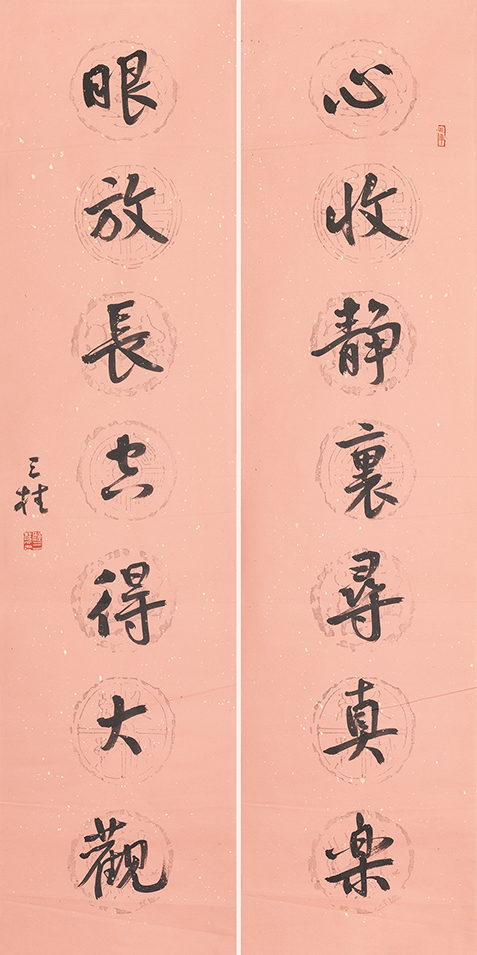 心收静裏尋真楽
眼放長空得大觀
三桂